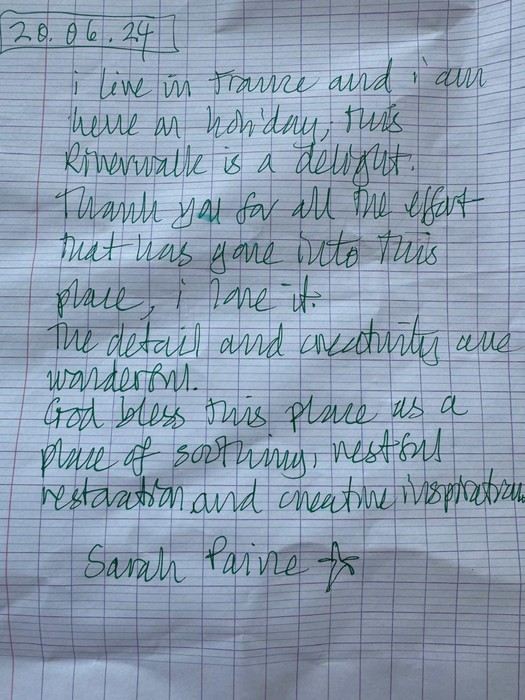 20.06.24
i live in France and i am
here on holiday, this
Riverwalk is a delight.
Thank you for all the effort
that has gone into this
place, i love it.
The detail and creativity are
wonderful.
God bless this place as a
place of soothing, restful
restoration and creative inspiration
Sarah Paine